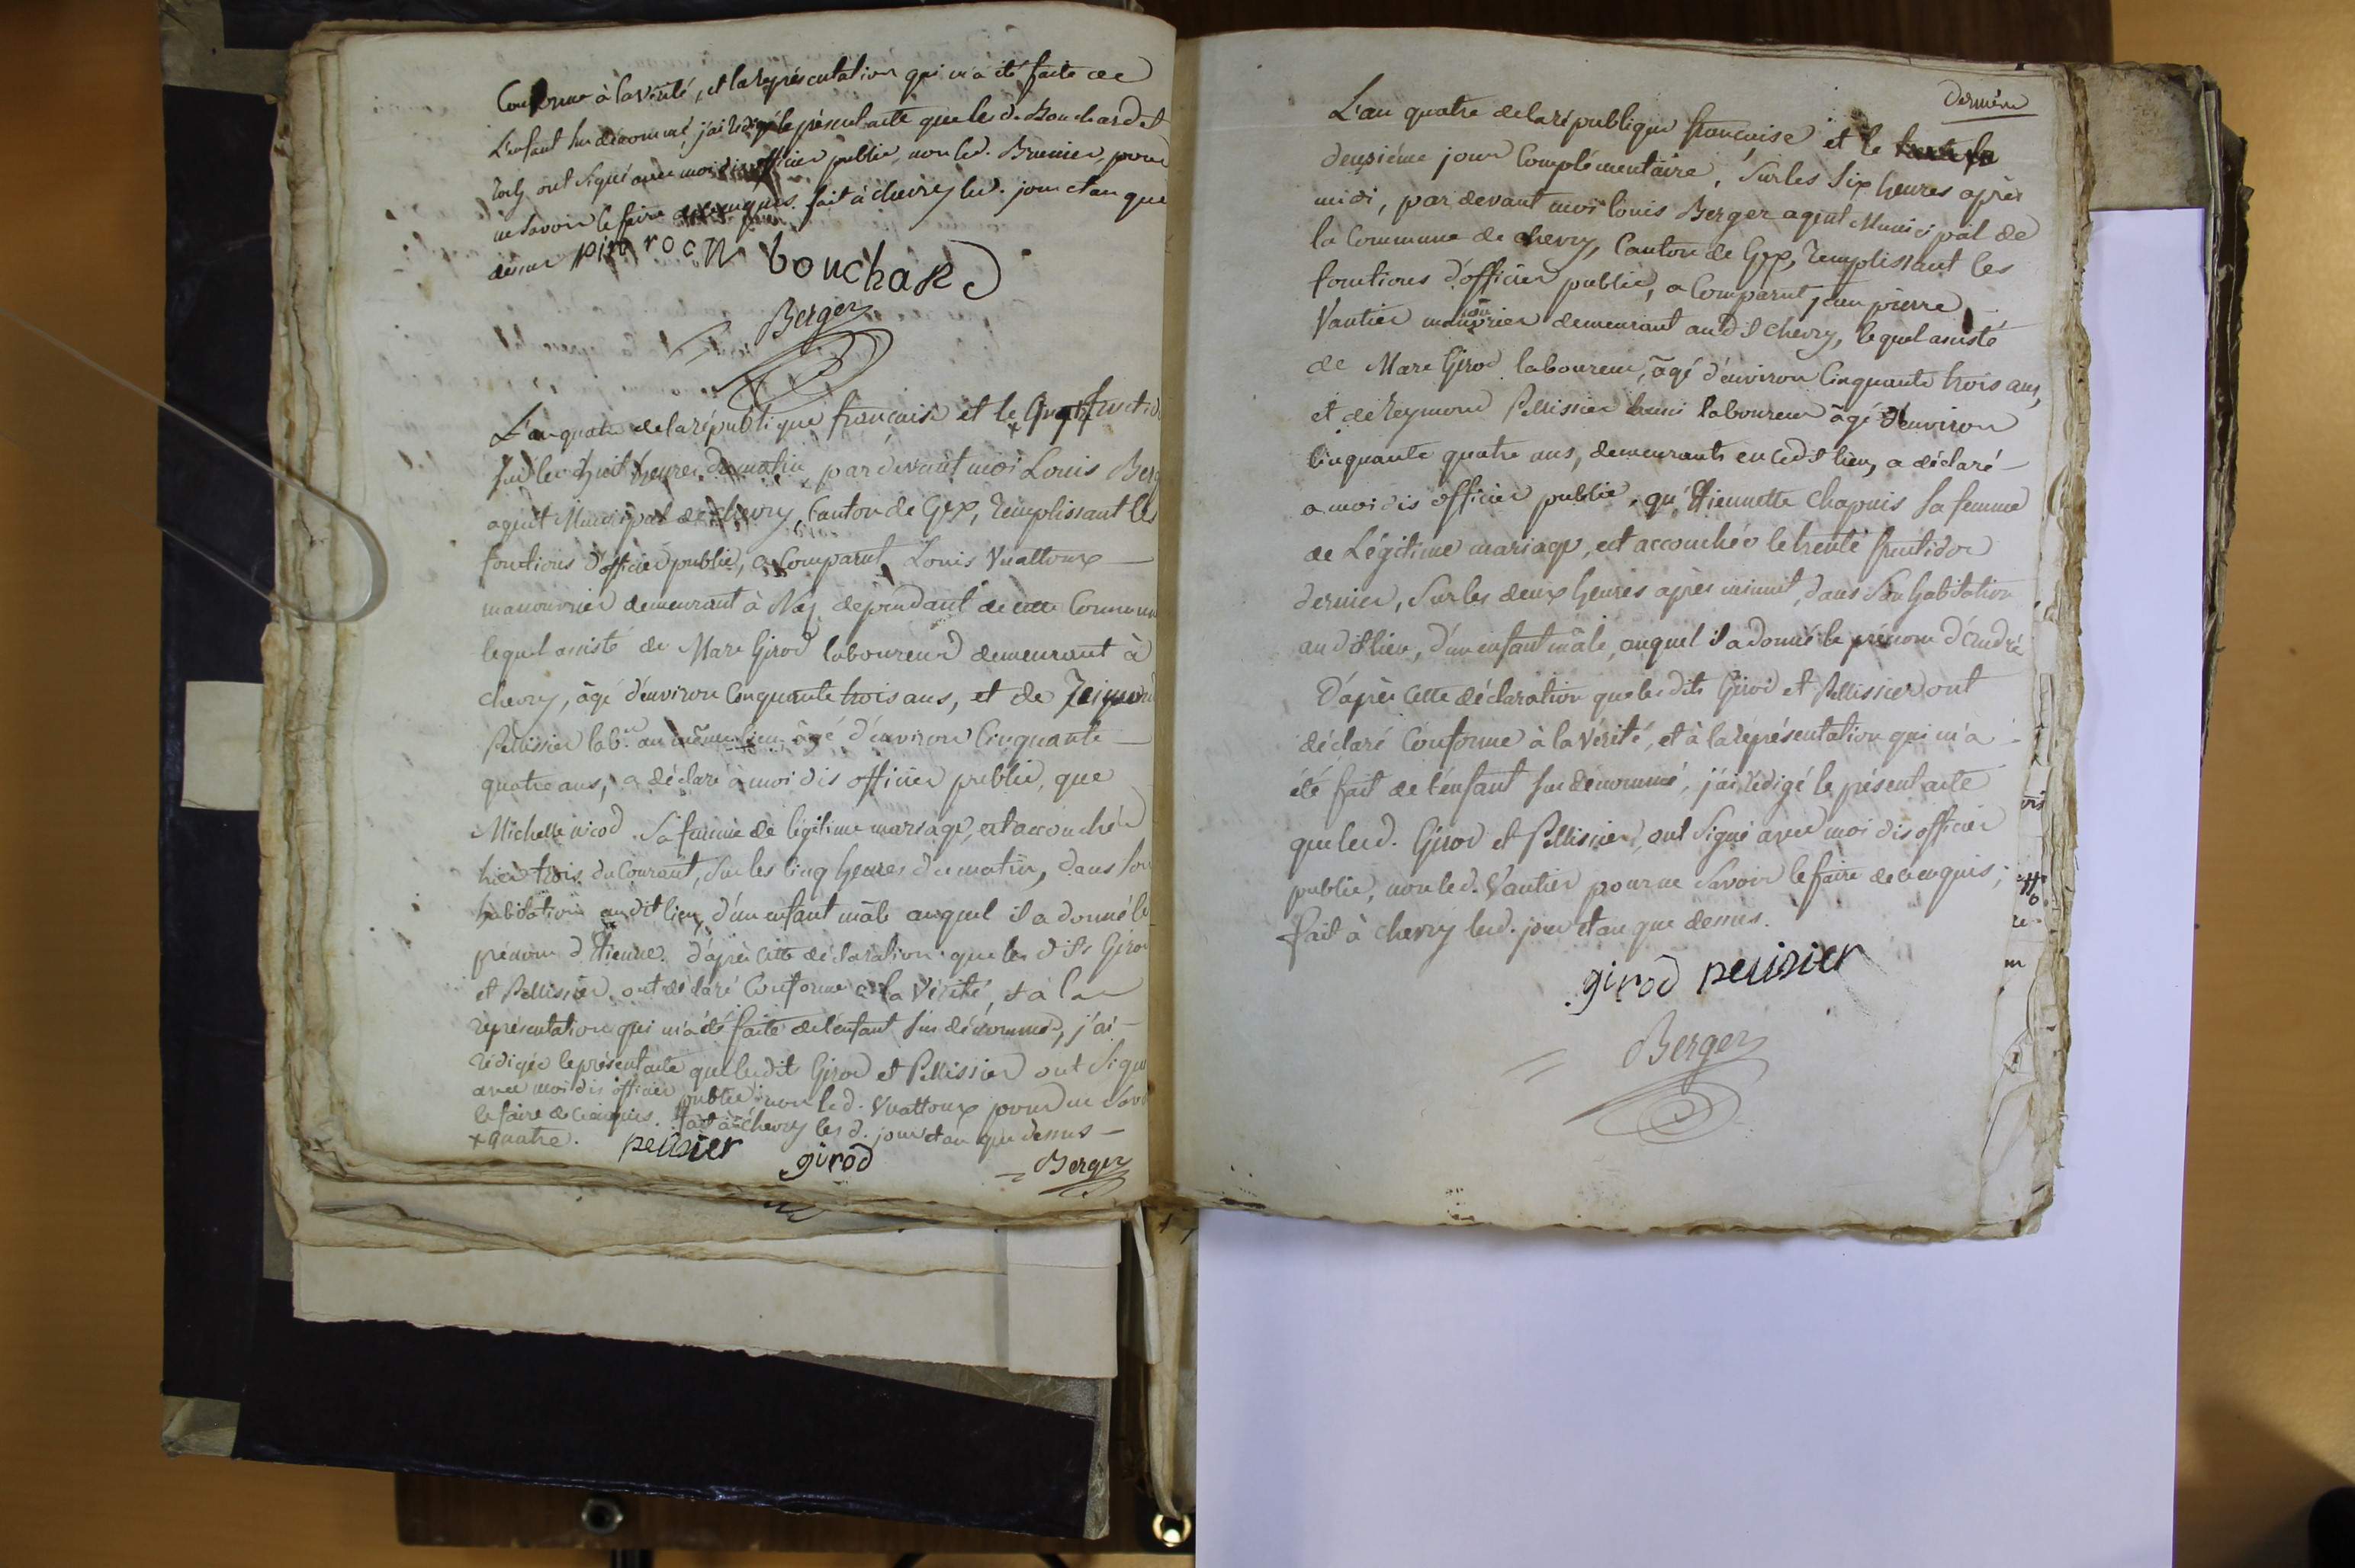 Conforme à la vérité, et la représentation qui m'a été faite de
L'enfant sus dénommé, j'ai rédigé le présent acte que les d. Bouchard et
roch ont signé avec moi dis officier public, non led. Brunier, pour
ne savoir le faire de ce enquis. fait à chevry led. jour et an que
dessus roch bouchard
Berger
L'an quatre de la république française et le fructid
sur les huit heures du matin par devant moi Louis Berg
agent Municipal de chevry, Canton de Gex, remplissant les
fonctions d'officier public, a Comparut Louis Vuattoux
manouvrier demeurant à Naz dépendant de cette Commune
lequel assisté de Marc Girod laboureur demeurant à
chevry, âgé d'environ Cinquante trois ans, et de Reimond
Pellissier lab.r au même lieu âgé d'environ Cinquante
quatre ans, a déclaré à moi dis officier public, que
Michelle nicod sa femme de légitime mariage, est accouchée
hier trois du Courant, sur les Cinq heures du matin, dans son
habitation au dit lieu, d'un enfant mâle auquel il a donné le
prénom d'Etienne. d'après cette déclaration que les dits Girod
et Pellissier ont déclaré Conforme à la Vérité, et à la
représentation qui m'a été faite de l'enfant sus dénommé, j'ai
rédigé le présent acte que lesdits Girod et Pellissier ont signé
avec moi dis officier public non led. Vuattoux pour ne savoir
le faire de ce enquis. fait à chevry les d. jour et an que dessus
+ quatre. pelisier girod Berger
dernière
L'an quatre de la république française et le
deuxiéme jour Complémentaire, sur les six heures après
midi, par devant moi louis Berger agent Municipal de
la Commune de chevry, Canton de Gex, remplissant les
fonctions d'officier public, a Comparut jean pierre
Vautier manouvrier demeurant au dit chevry, lequel assisté
de Marc Girod laboureur, âgé d'environ Cinquante trois ans,
et de Reymond Pellissier aussi laboureur âgé d'environ
Cinquante quatre ans, demeurants en ced.t lieu, a déclaré
a moi dis officier public, qu'Etiennette Chapuis sa femme
de Légitime mariage, est accouchée le trente fructidor
dernier, sur les deux heures après minuit, dans son habitation
au dit lieu, d'un enfant mâle, auquel il a donné le prénom d'André
D'après cette déclaration que les dits Girod et Pellissier ont
déclaré Conforme à la Vérité, et à la représentation qui m'a
été fait de l'enfant sus dénommé, j'ai rédigé le présent acte
que led. Girod et Pellissier, ont signé avec moi dis officier
public, non led. Vautier pour ne savoir le faire de ce enquis;
fait à chevry led. jour et an que dessus.
girod pelisier
Berger